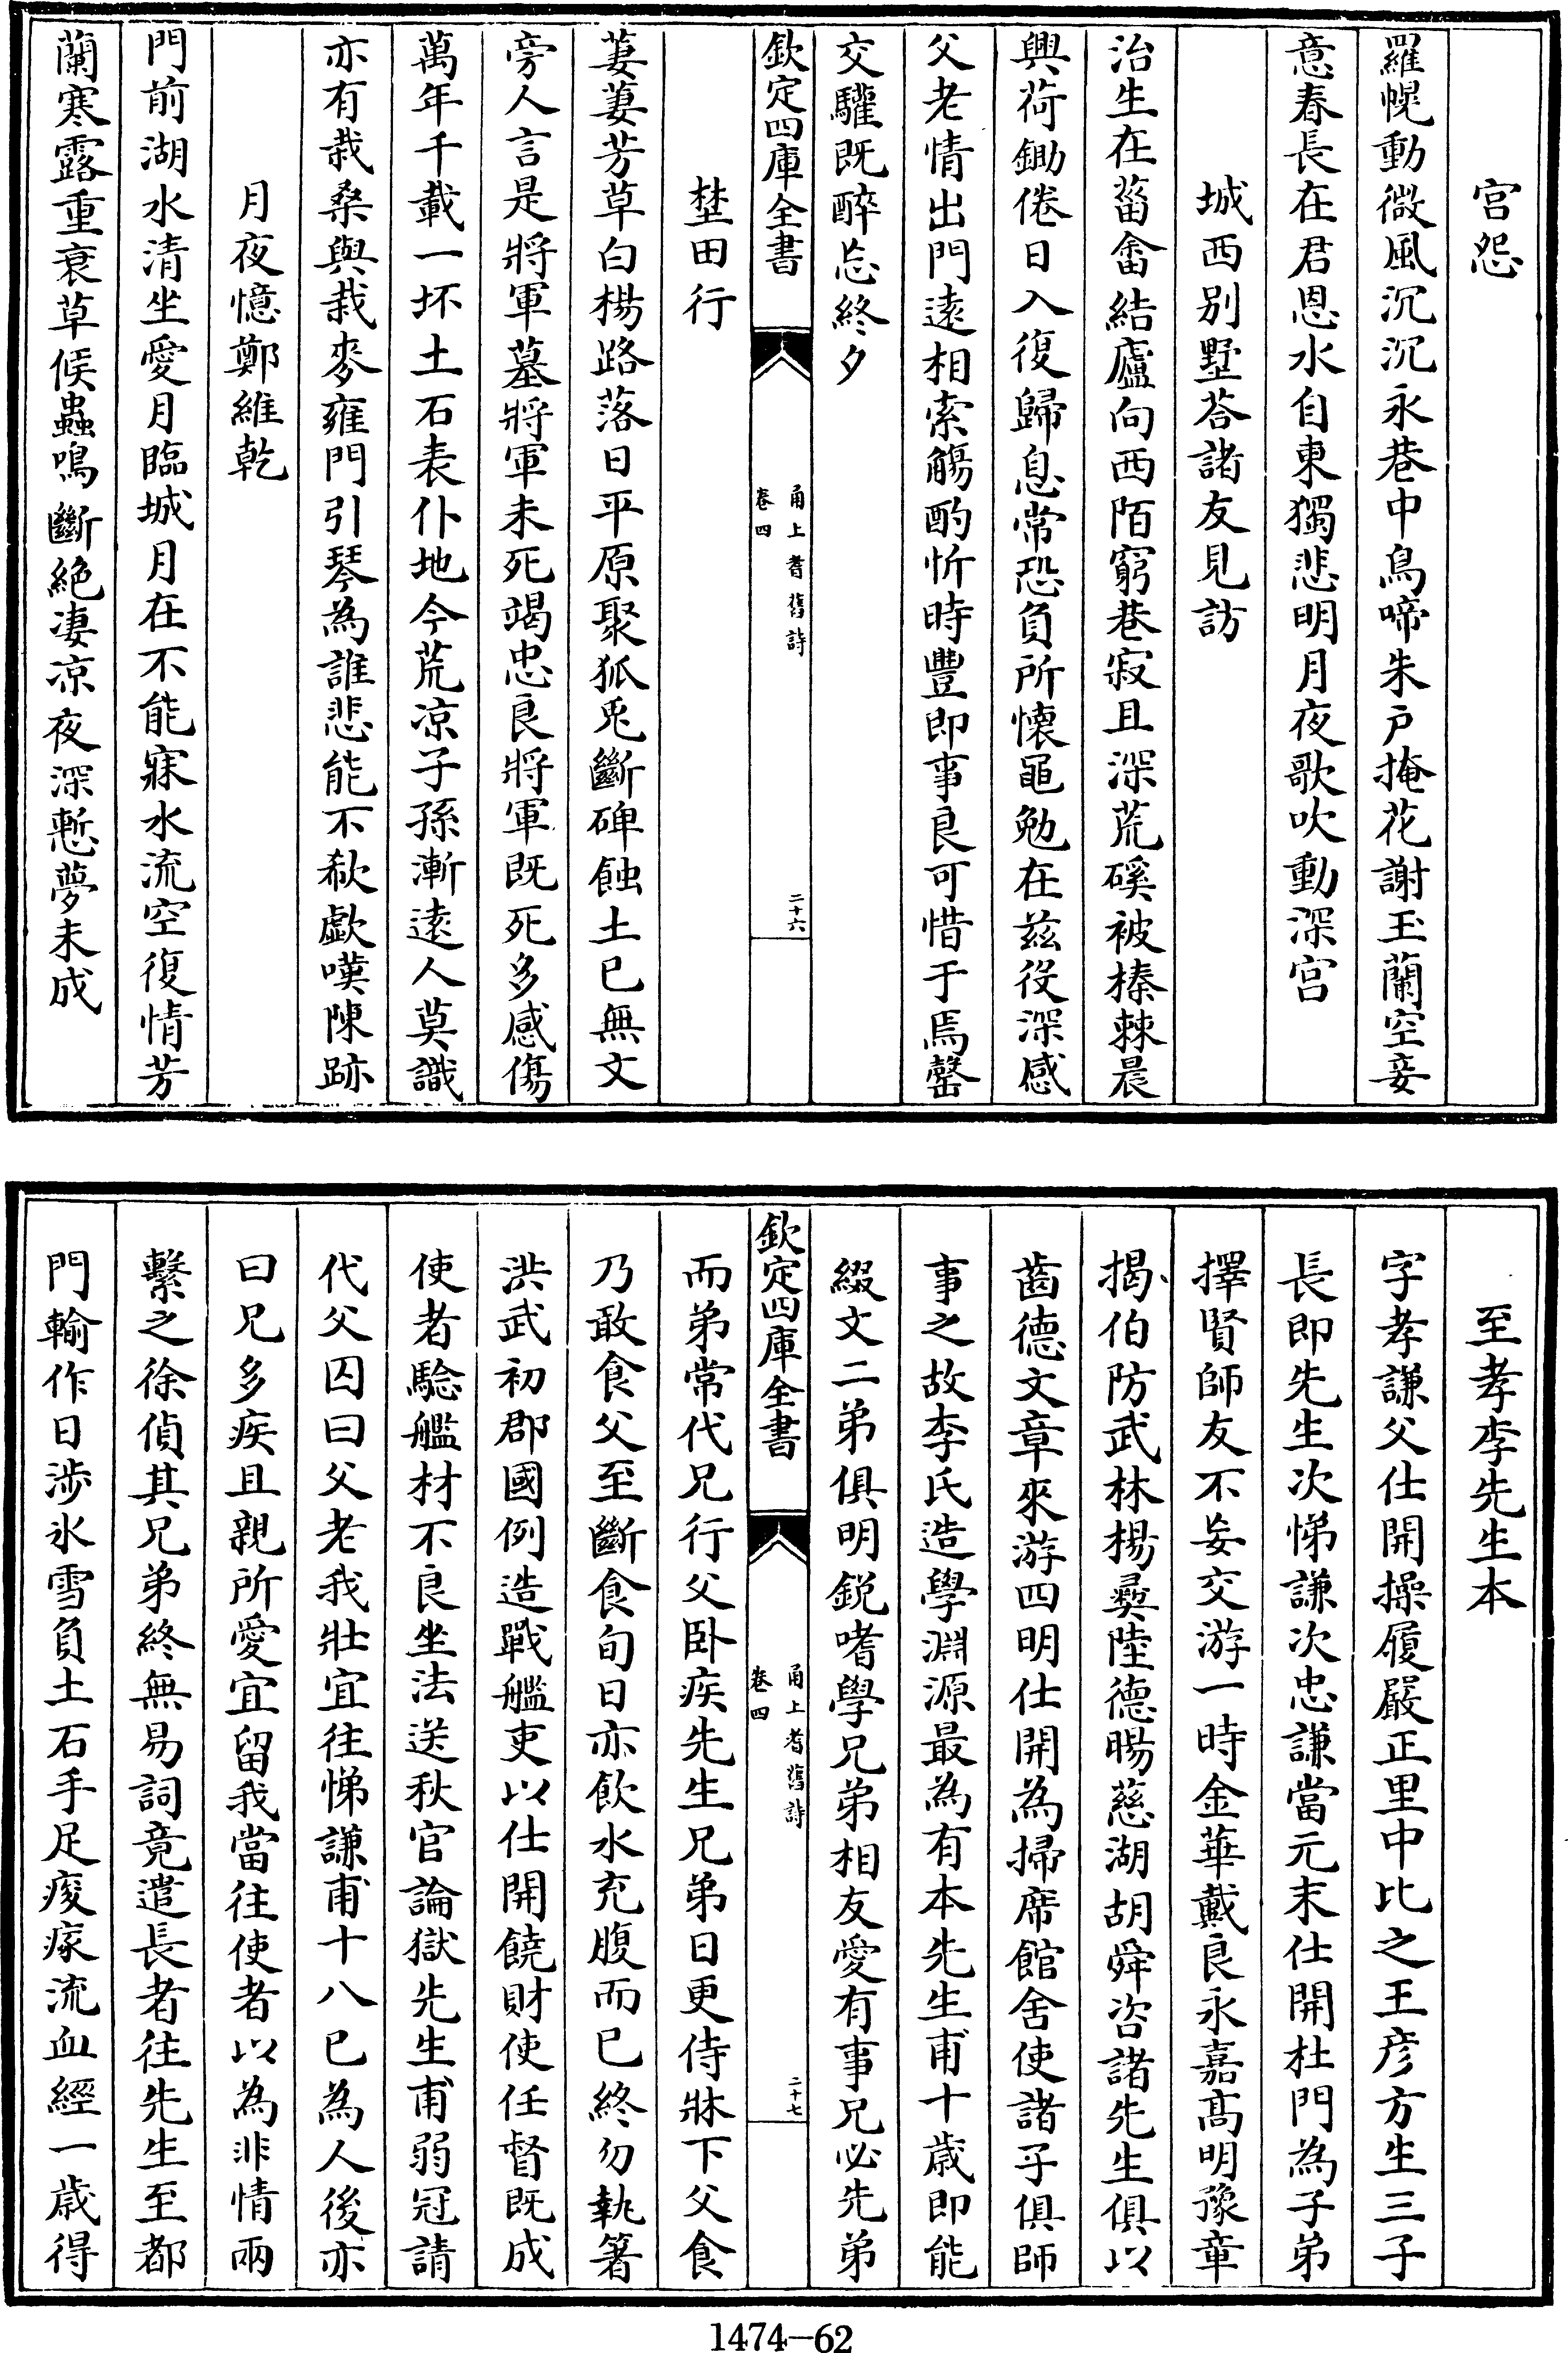 宫怨
羅幌動微風沉沉永巷中鳥啼朱户掩花謝玉蘭空妾
意春長在君恩水自東獨悲明月夜歌吹動深宫
城西别墅荅諸友見訪
治生在菑畬結廬向西陌窮巷寂且深荒磎被榛棘晨
興荷鋤倦日入復歸息常恐負所懐黽勉在兹役深感
父老情出門逺相索觴酌忻時豐即事良可惜于焉罄
交驩既醉忘終夕
欽定四庫全書
甬上耆舊詩
卷四
二十六
埜田行
萋萋芳草白楊路落日平原聚狐兎斷碑蝕土已無文
旁人言是將軍墓將軍未死竭忠良將軍既死多感傷
萬年千載一坏土石表仆地今荒凉子孫漸逺人莫識
亦有栽桑與栽麥雍門引琴為誰悲能不欷歔嘆陳跡
月夜憶鄭維乾
門前湖水清坐愛月臨城月在不能寐水流空復情芳
蘭寒露重衰草候蟲鳴斷絶凄凉夜深慙夢未成
至孝李先生本
字孝謙父仕開操履嚴正里中比之王彦方生三子
長即先生次悌謙次忠謙當元末仕開杜門為子弟
擇賢師友不妄交游一時金華戴良永嘉髙明豫章
揭伯防武林楊彞陸德暘慈湖胡舜咨諸先生俱以
齒德文章來游四明仕開為掃席館舍使諸子俱師
事之故李氏造學淵源最為有本先生甫十歳即能
綴文二弟俱明鋭嗜學兄弟相友愛有事兄必先弟
欽定四庫全書
甬上耆舊詩
卷四
二十七
而弟常代兄行父卧疾先生兄弟日更侍牀下父食
乃敢食父至斷食旬日亦飲水充腹而已終勿執箸
洪武初郡國例造戰艦吏以仕開饒財使任督既成
使者騐艦材不良坐法送秋官論獄先生甫弱冠請
代父囚曰父老我壯宜往悌謙甫十八已為人後亦
曰兄多疾且親所愛宜留我當往使者以為非情兩
繫之徐偵其兄弟終無易詞竟遣長者往先生至都
門輸作日涉氷雪負土石手足痠瘃流血經一歳得
1474—62